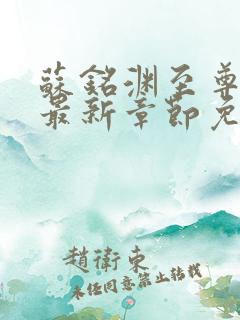 蘇銘淵至尊
最新章節免
趙衛東
未經同意禁止轉載